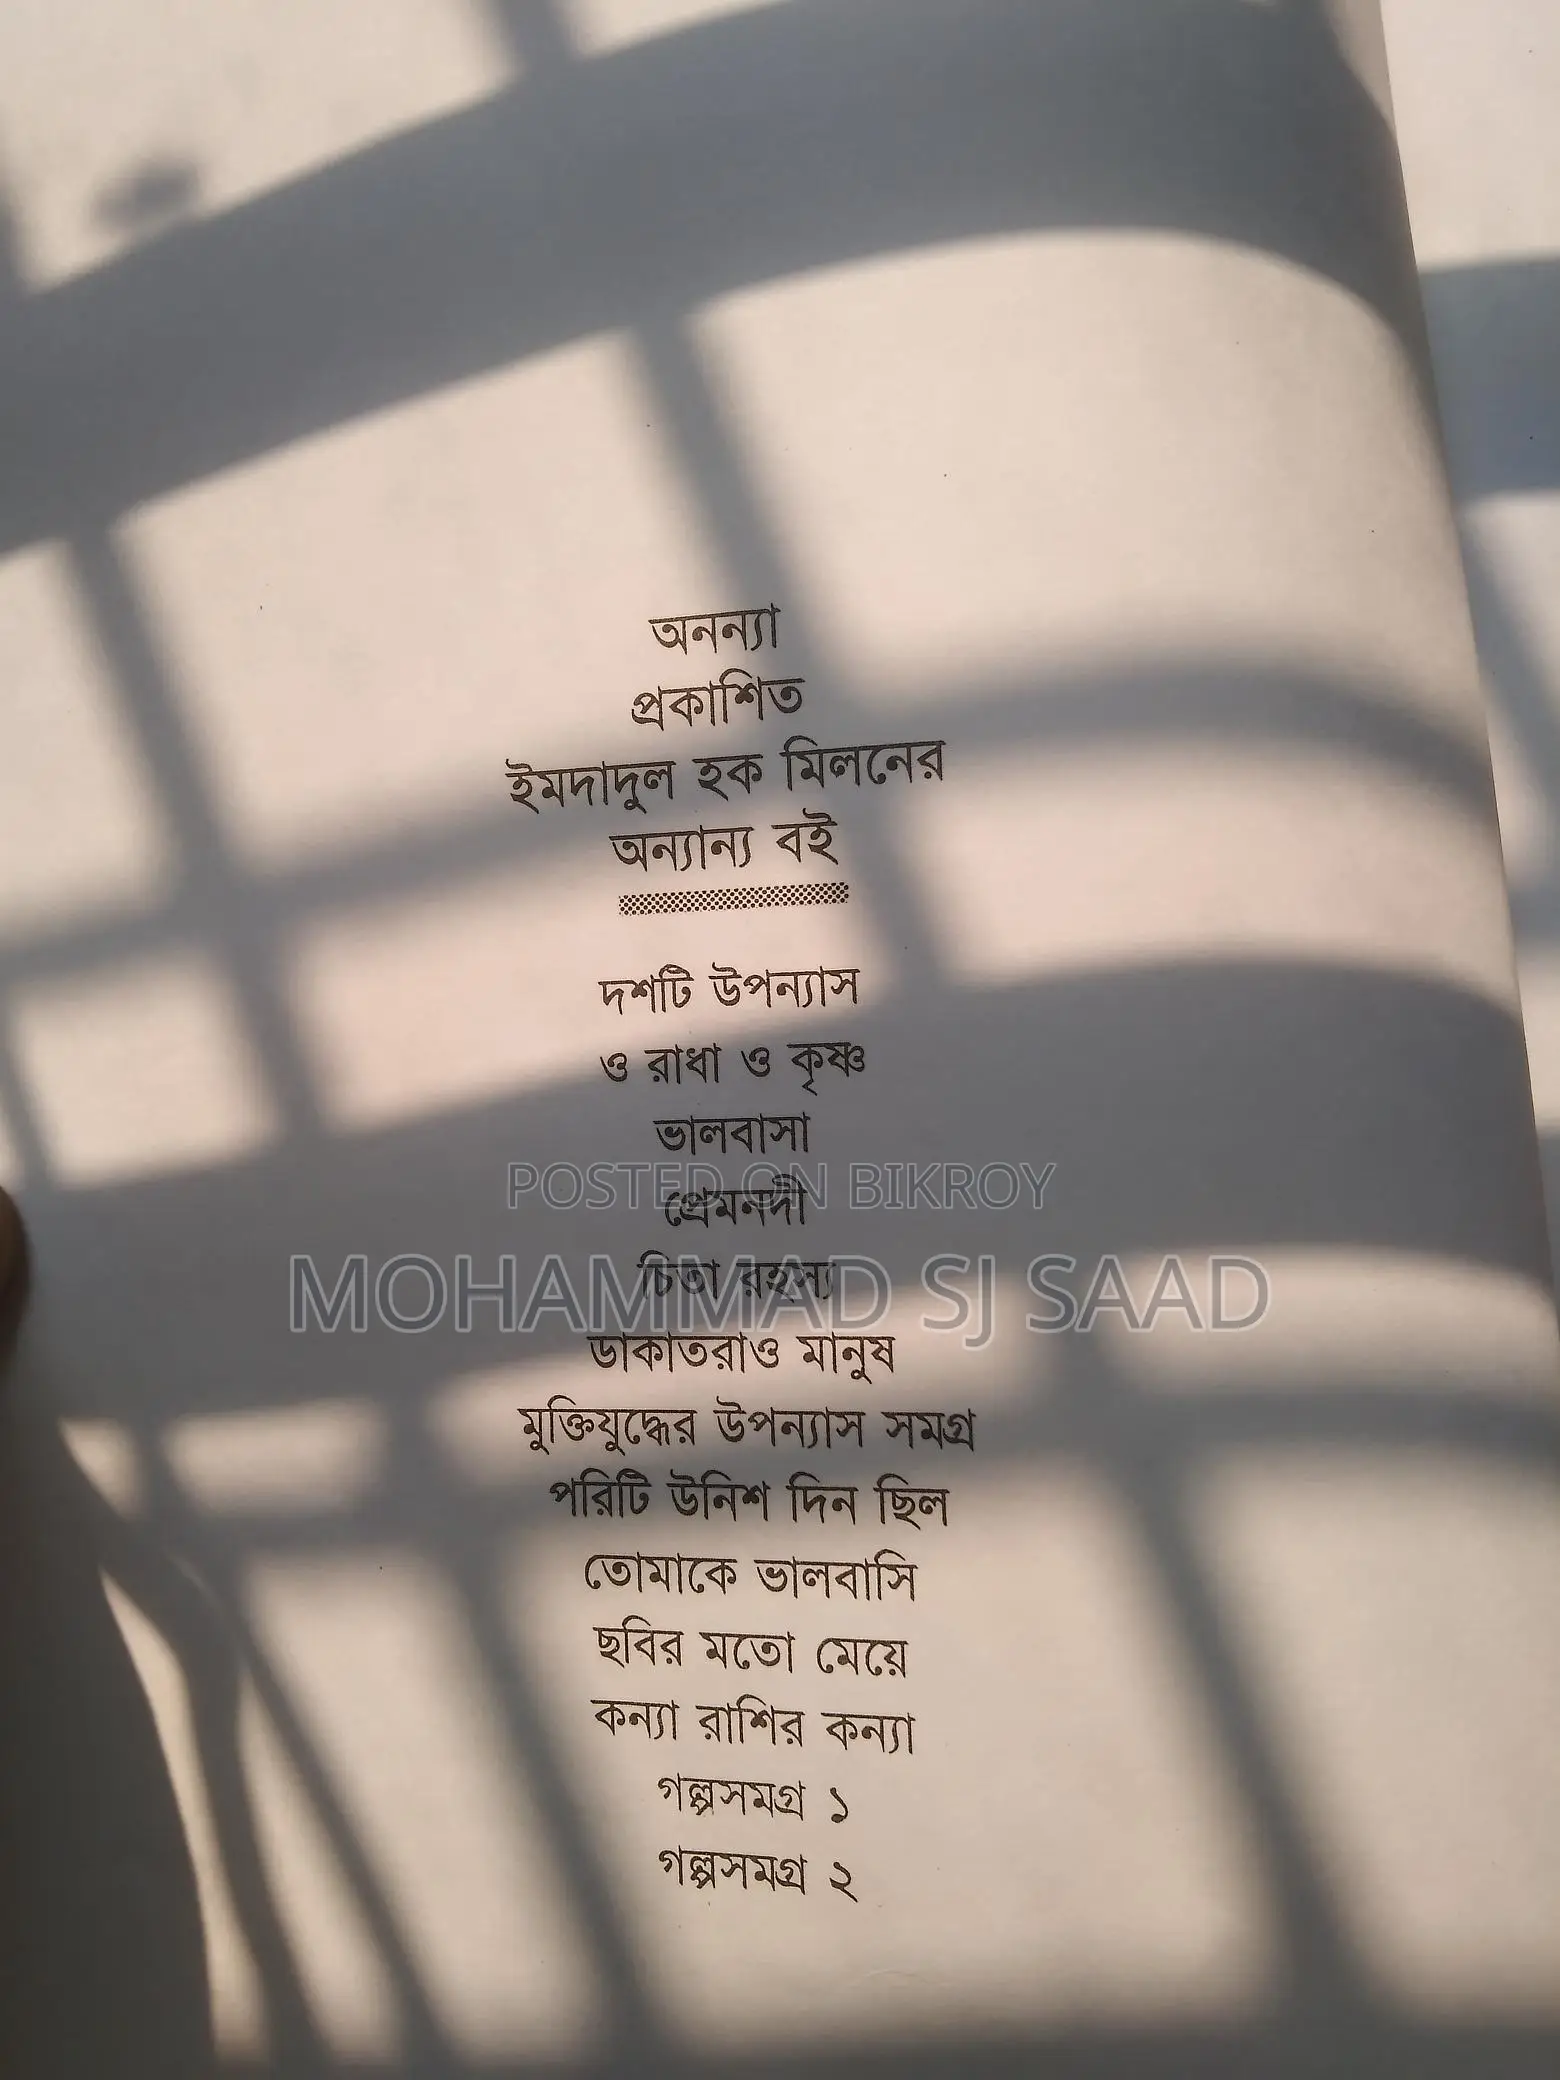 অনন্যা
প্রকাশিত
ইমদাদুল হক মিলনের
অন্যান্য বই
দশটি উপন্যাস
ও রাধা ও কৃষ্ণ
ভালবাসা
POSTED ON BIKROY
প্রেমনদী
চিতা রহস্য
MOHAMMAD SJ SAAD
ডাকাতরাও মানুষ
মুক্তিযুদ্ধের উপন্যাস সমগ্র
পরিটি উনিশ দিন ছিল
তোমাকে ভালবাসি
ছবির মতো মেয়ে
কন্যা রাশির কন্যা
গল্পসমগ্র ১
গল্পসমগ্র ২